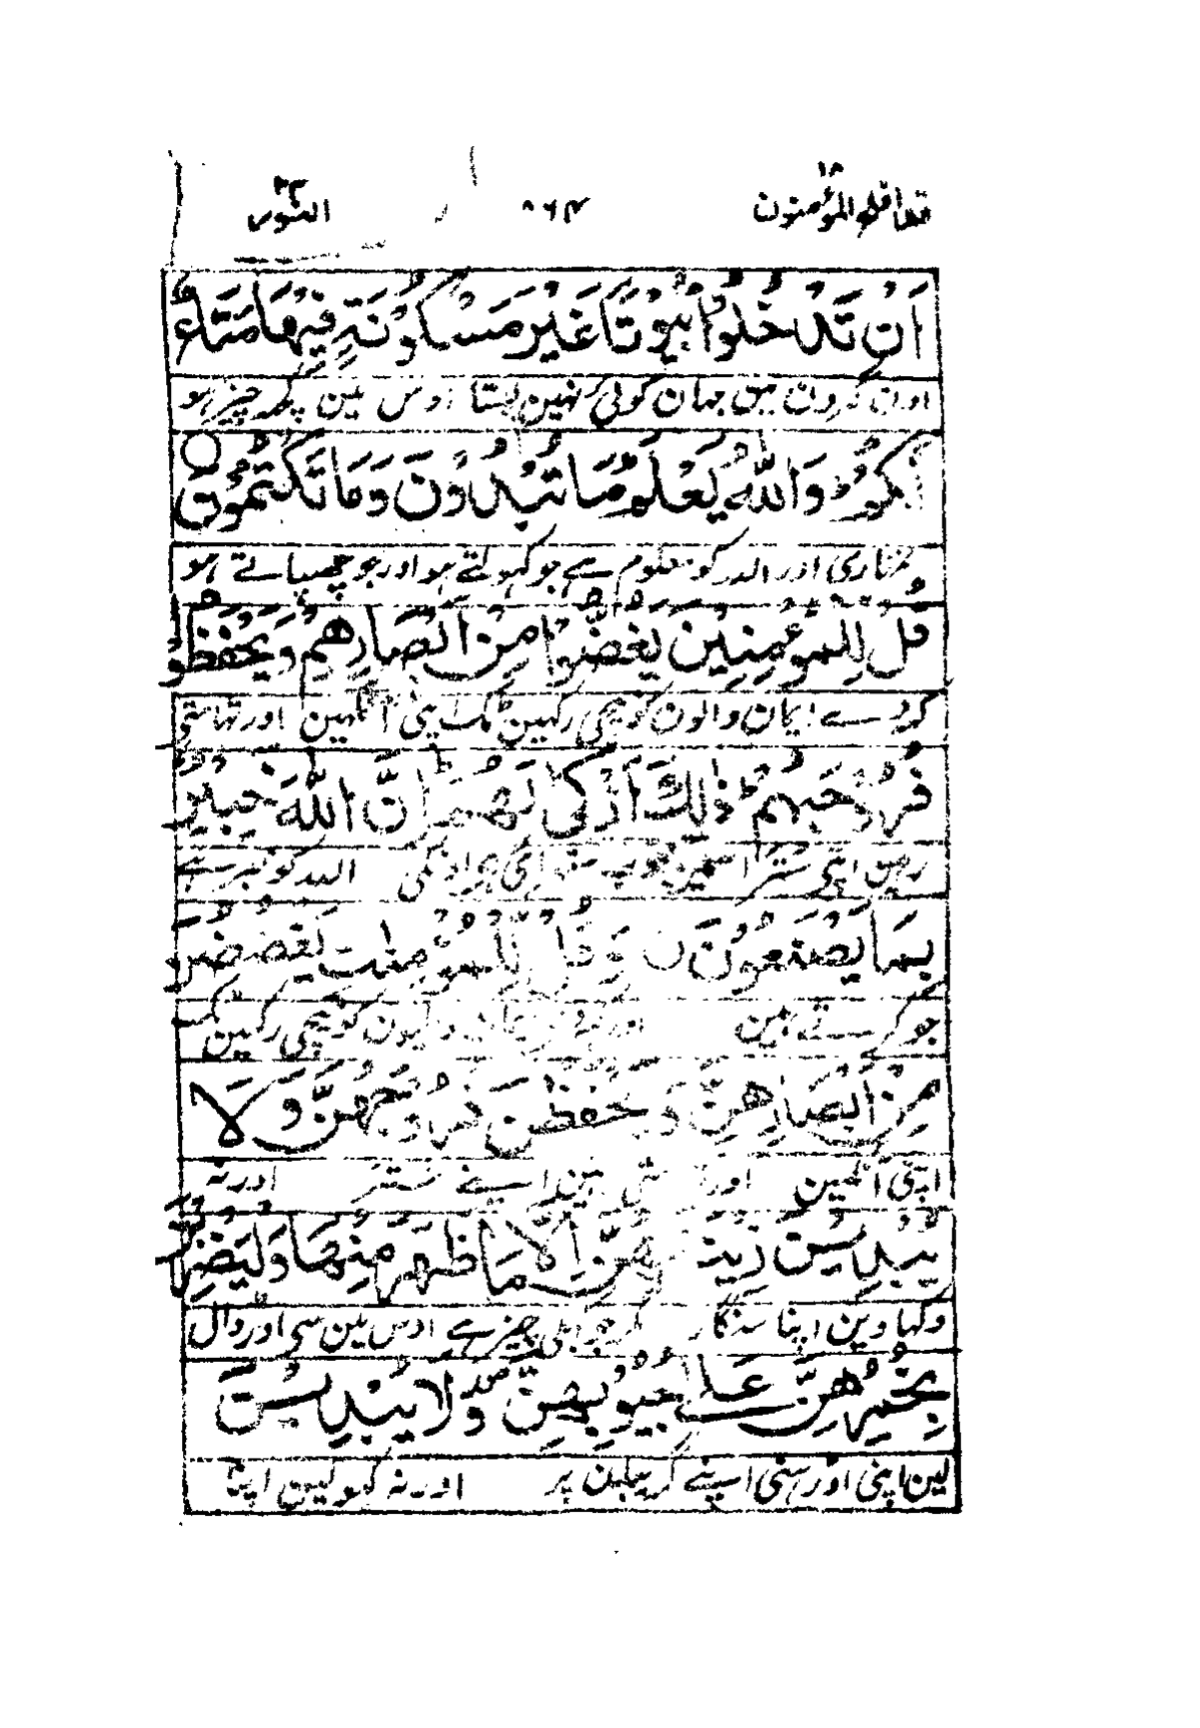 قد افلح المؤمنون ١٨ ٥٦٤ النور ٢٣
اَنْ تَدْخُلُوْا بُيُوْتًا غَيْرَ مَسْكُوْنَةٍ فِيْهَا مَتَاعٌ
اون گهرون مین جہان کوئی نہین بستا اوس مین کچھ چیز ہو
لَّكُمْ ؕ وَاللّٰهُ يَعْلَمُ مَا تُبْدُوْنَ وَمَا تَكْتُمُوْنَ
تمہاری اور اللہ کو معلوم ہے جو کہولتے ہو اور جو چھپاتے ہو
قُلْ لِّلْمُؤْمِنِيْنَ يَغُضُّوْا مِنْ اَبْصَارِهِمْ وَيَحْفَظُوْا
کہدے ایمان والون کو نیچی رکہین ٹک اپنی آنکہین اور تہامتی
فُرُوْجَهُمْ ؕ ذٰلِكَ اَزْكٰى لَهُمْ ؕ اِنَّ اللّٰهَ خَبِيْرٌۢ
رہین اپنی ستر اسمین خوب ستہرائی ہے اونکی اللہ کو خبر ہے
بِمَا يَصْنَعُوْنَ وَقُلْ لِّلْمُؤْمِنٰتِ يَغْضُضْنَ
جو کرتے ہین اور کہدے ایمان والیون کو نیچی رکہین ٹک
مِنْ اَبْصَارِهِنَّ وَيَحْفَظْنَ فُرُوْجَهُنَّ وَلَا
اپنی آنکہین اور تہامتی رہین اپنے ستر اور نہ
يُبْدِيْنَ زِيْنَتَهُنَّ اِلَّا مَا ظَهَرَ مِنْهَا وَلْيَضْرِبْنَ
دکہاوین اپنا سنگار مگر جو کہلی چیز ہے اوس مین سی اور ڈال
بِخُمُرِهِنَّ عَلٰے جُيُوْبِهِنَّ ۪ وَلَا يُبْدِيْنَ
لین اپنی اوڑہنی اپنے گریبان پر اور نہ کہولین اپنا